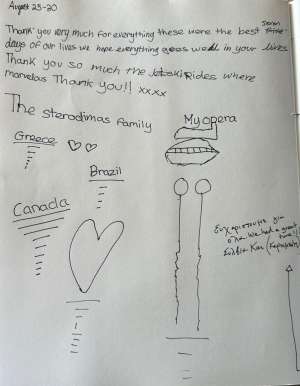 August 23-30
Thank you very much for everything these were the best seven
days of our lives we hope everything goes well in your lives
Thank you so much the Jetski Rides where
marvelous Thank you!! xxxx
The sterodimas family
Greece
Brazil
Canada
My opera
Ευχαριστούμε για
όλα We had a great
time!!